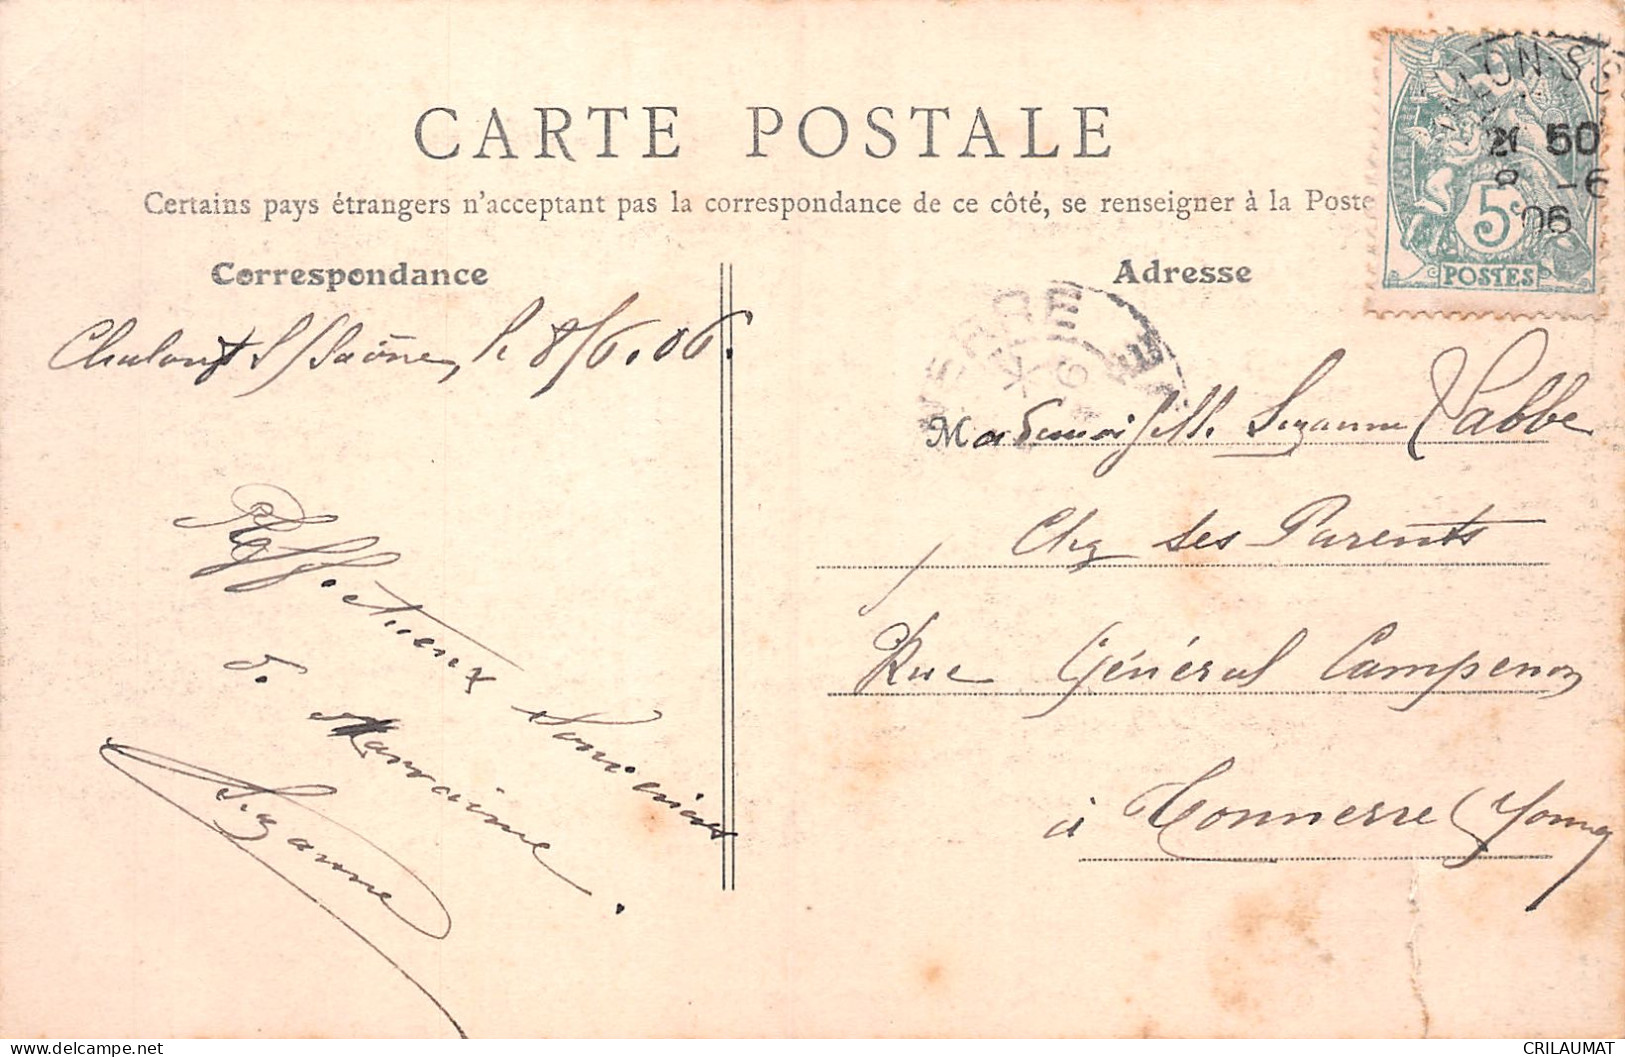 CARTE POSTALE
Certains pays étrangers n'acceptant pas la correspondance de ce côté, se renseigner à la Poste
Correspondance
Adresse
5c
POSTES
21 50
8 -6
06
TONNERRE
Chalons S/Saône, le 8/6.06.
Affectueux Souvenirs
d. Marraine
Suzanne
Mademoiselle Suzanne Labbe
Chez ses Parents
Rue Général Campenon
à Tonnerre (Yonne)
CRILAUMAT